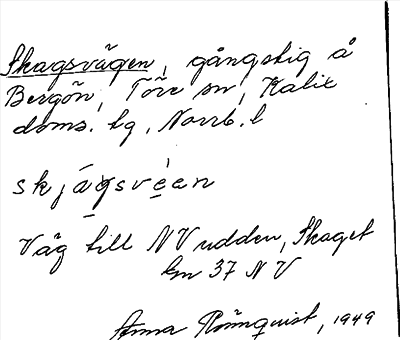 Skagsvägen, gångstig å
Bergön, Töre sn, Kalix
doms. lg, Norrb. l
skjágsvèen
Väg till NV udden, Skaget
km 37 NV
Anna Rönnquist, 1949